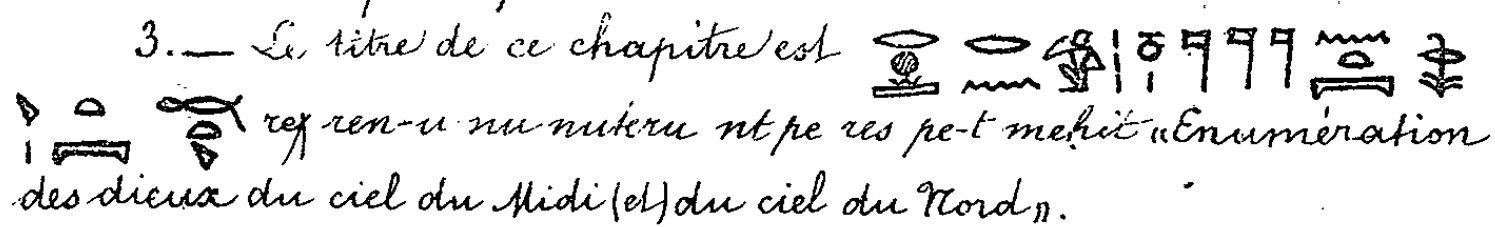 3. — Le titre de ce chapitre est
reχ ren-u nu nuteru nt pe res pe-t mehit «Enumération
des dieux du ciel du Midi (et) du ciel du Nord».